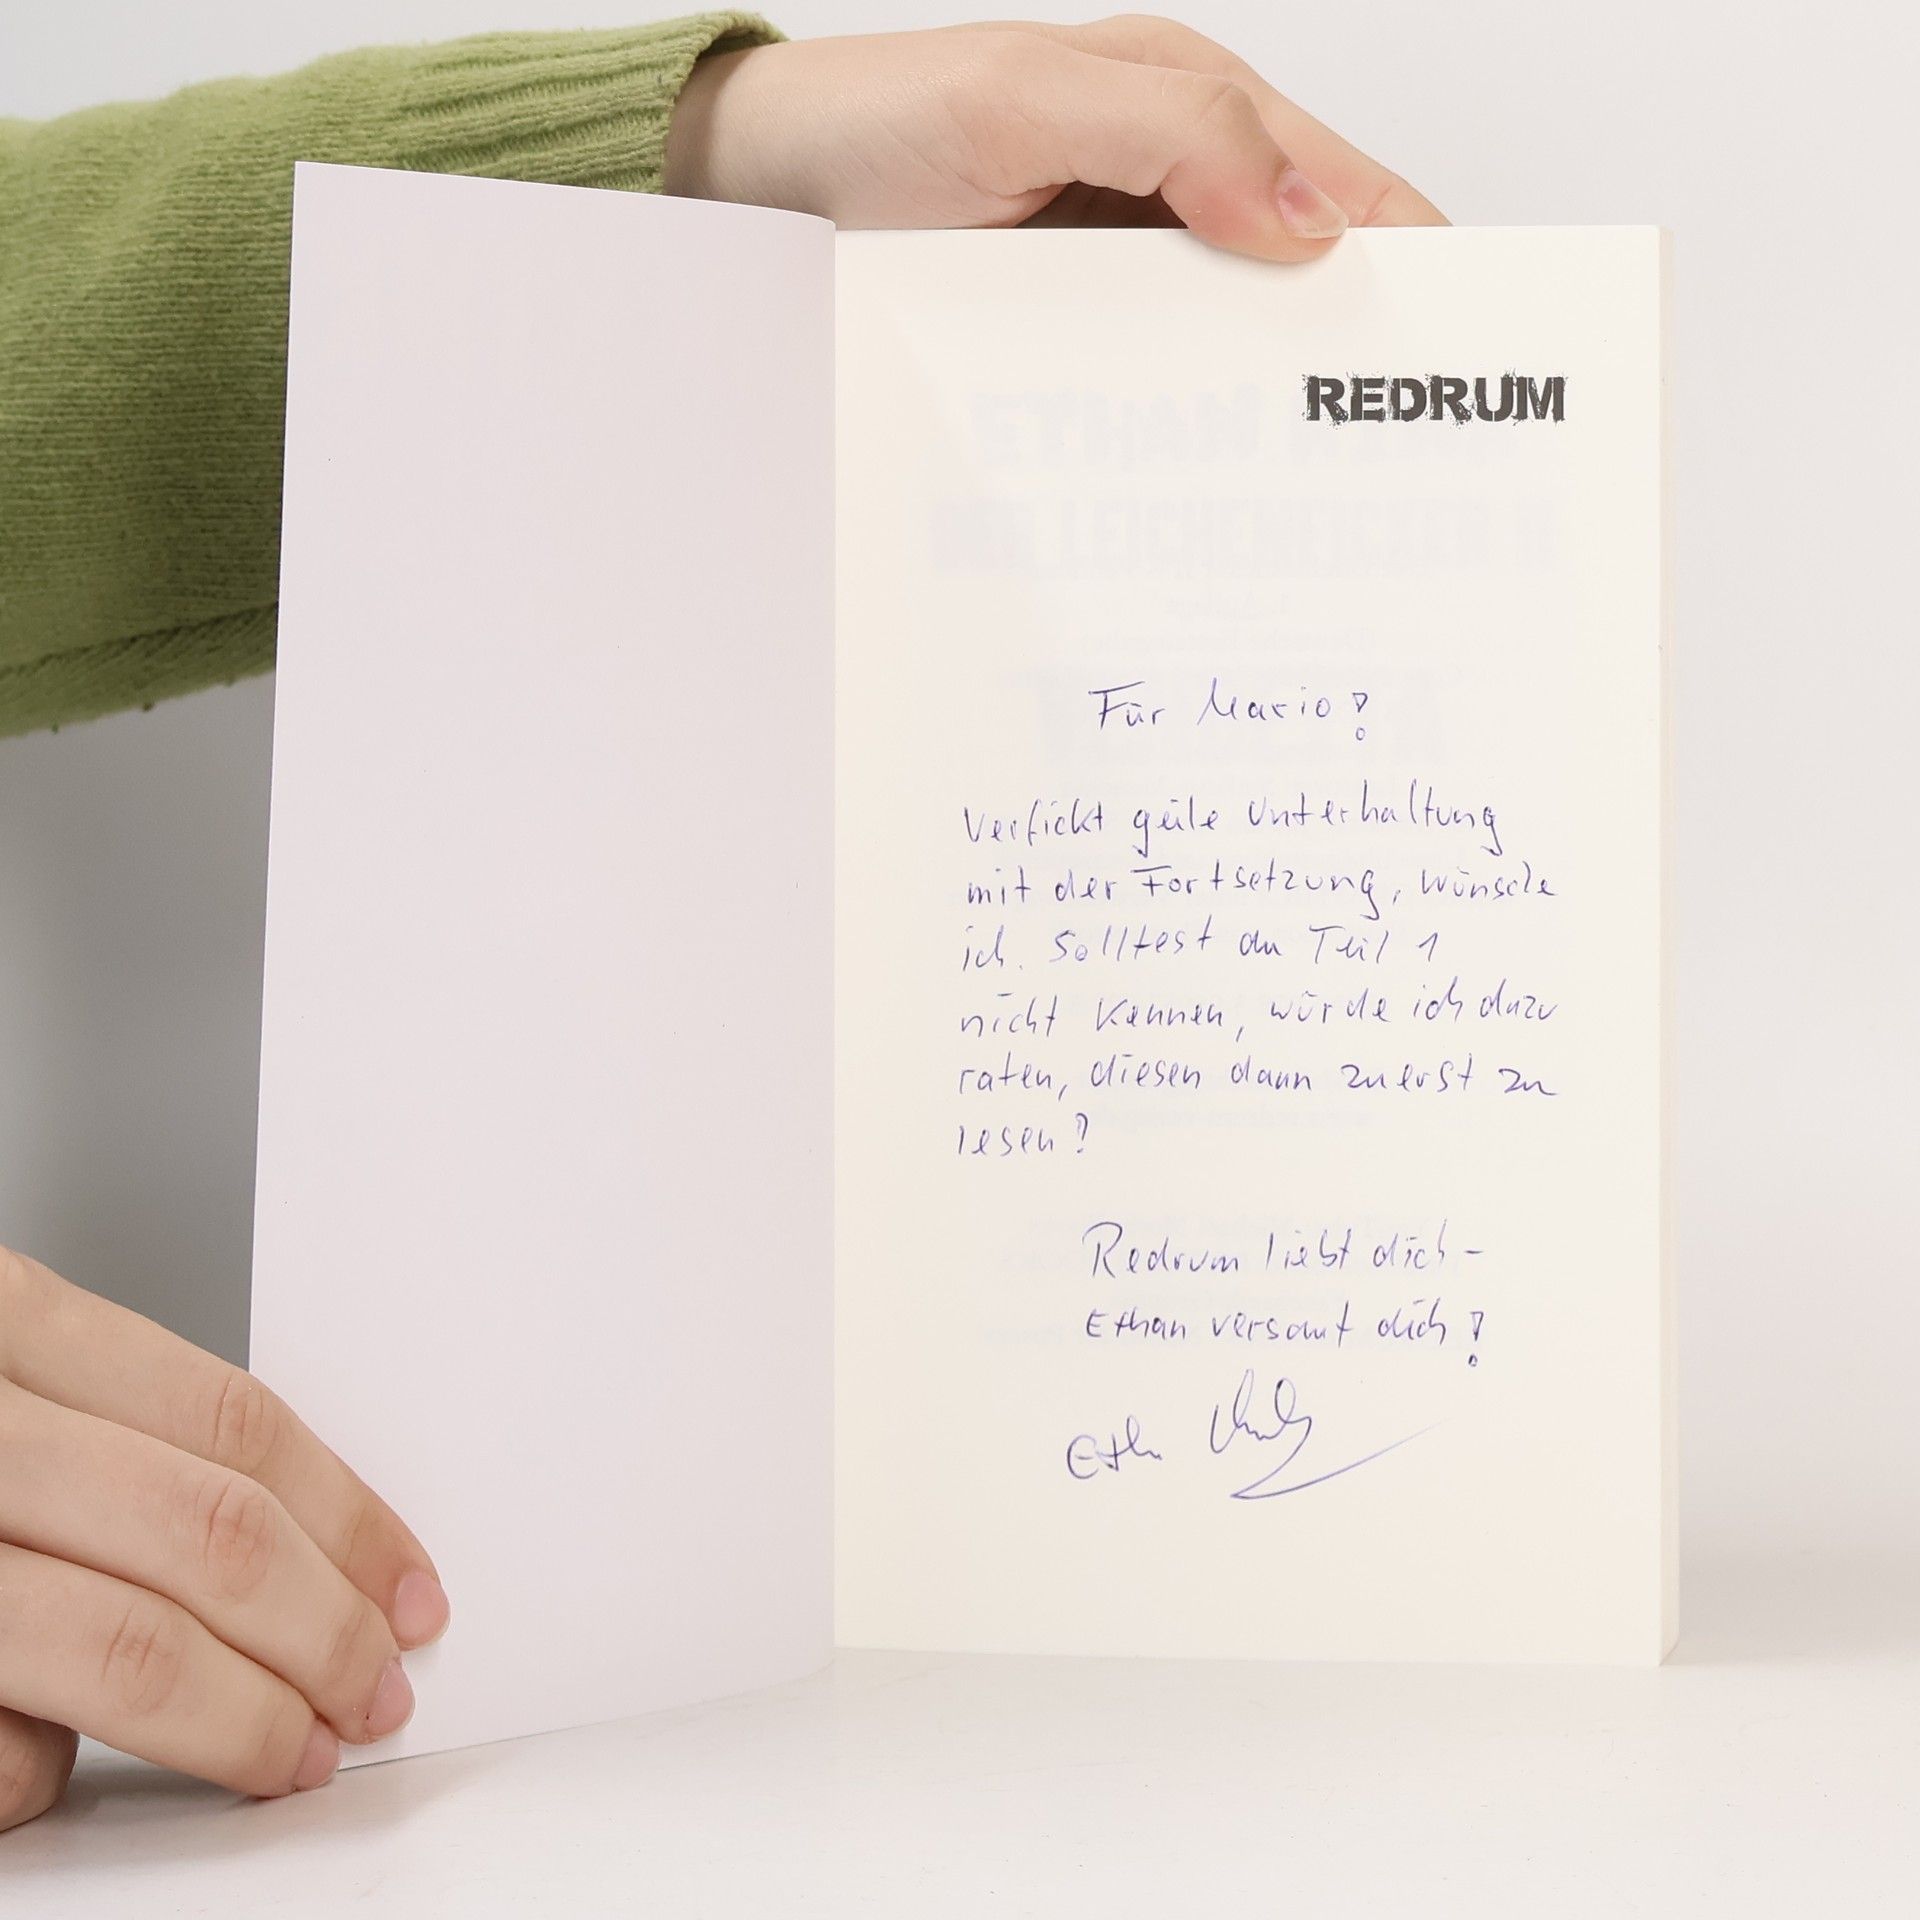 REDRUM
Für Mario!
Verfickt geile Unterhaltung
mit der Fortsetzung, wünsche
ich. Solltest du Teil 1
nicht kennen, würde ich dazu
raten, diesen dann zuerst zu
lesen!
Redrum liebt dich -
Ethan versaut dich!